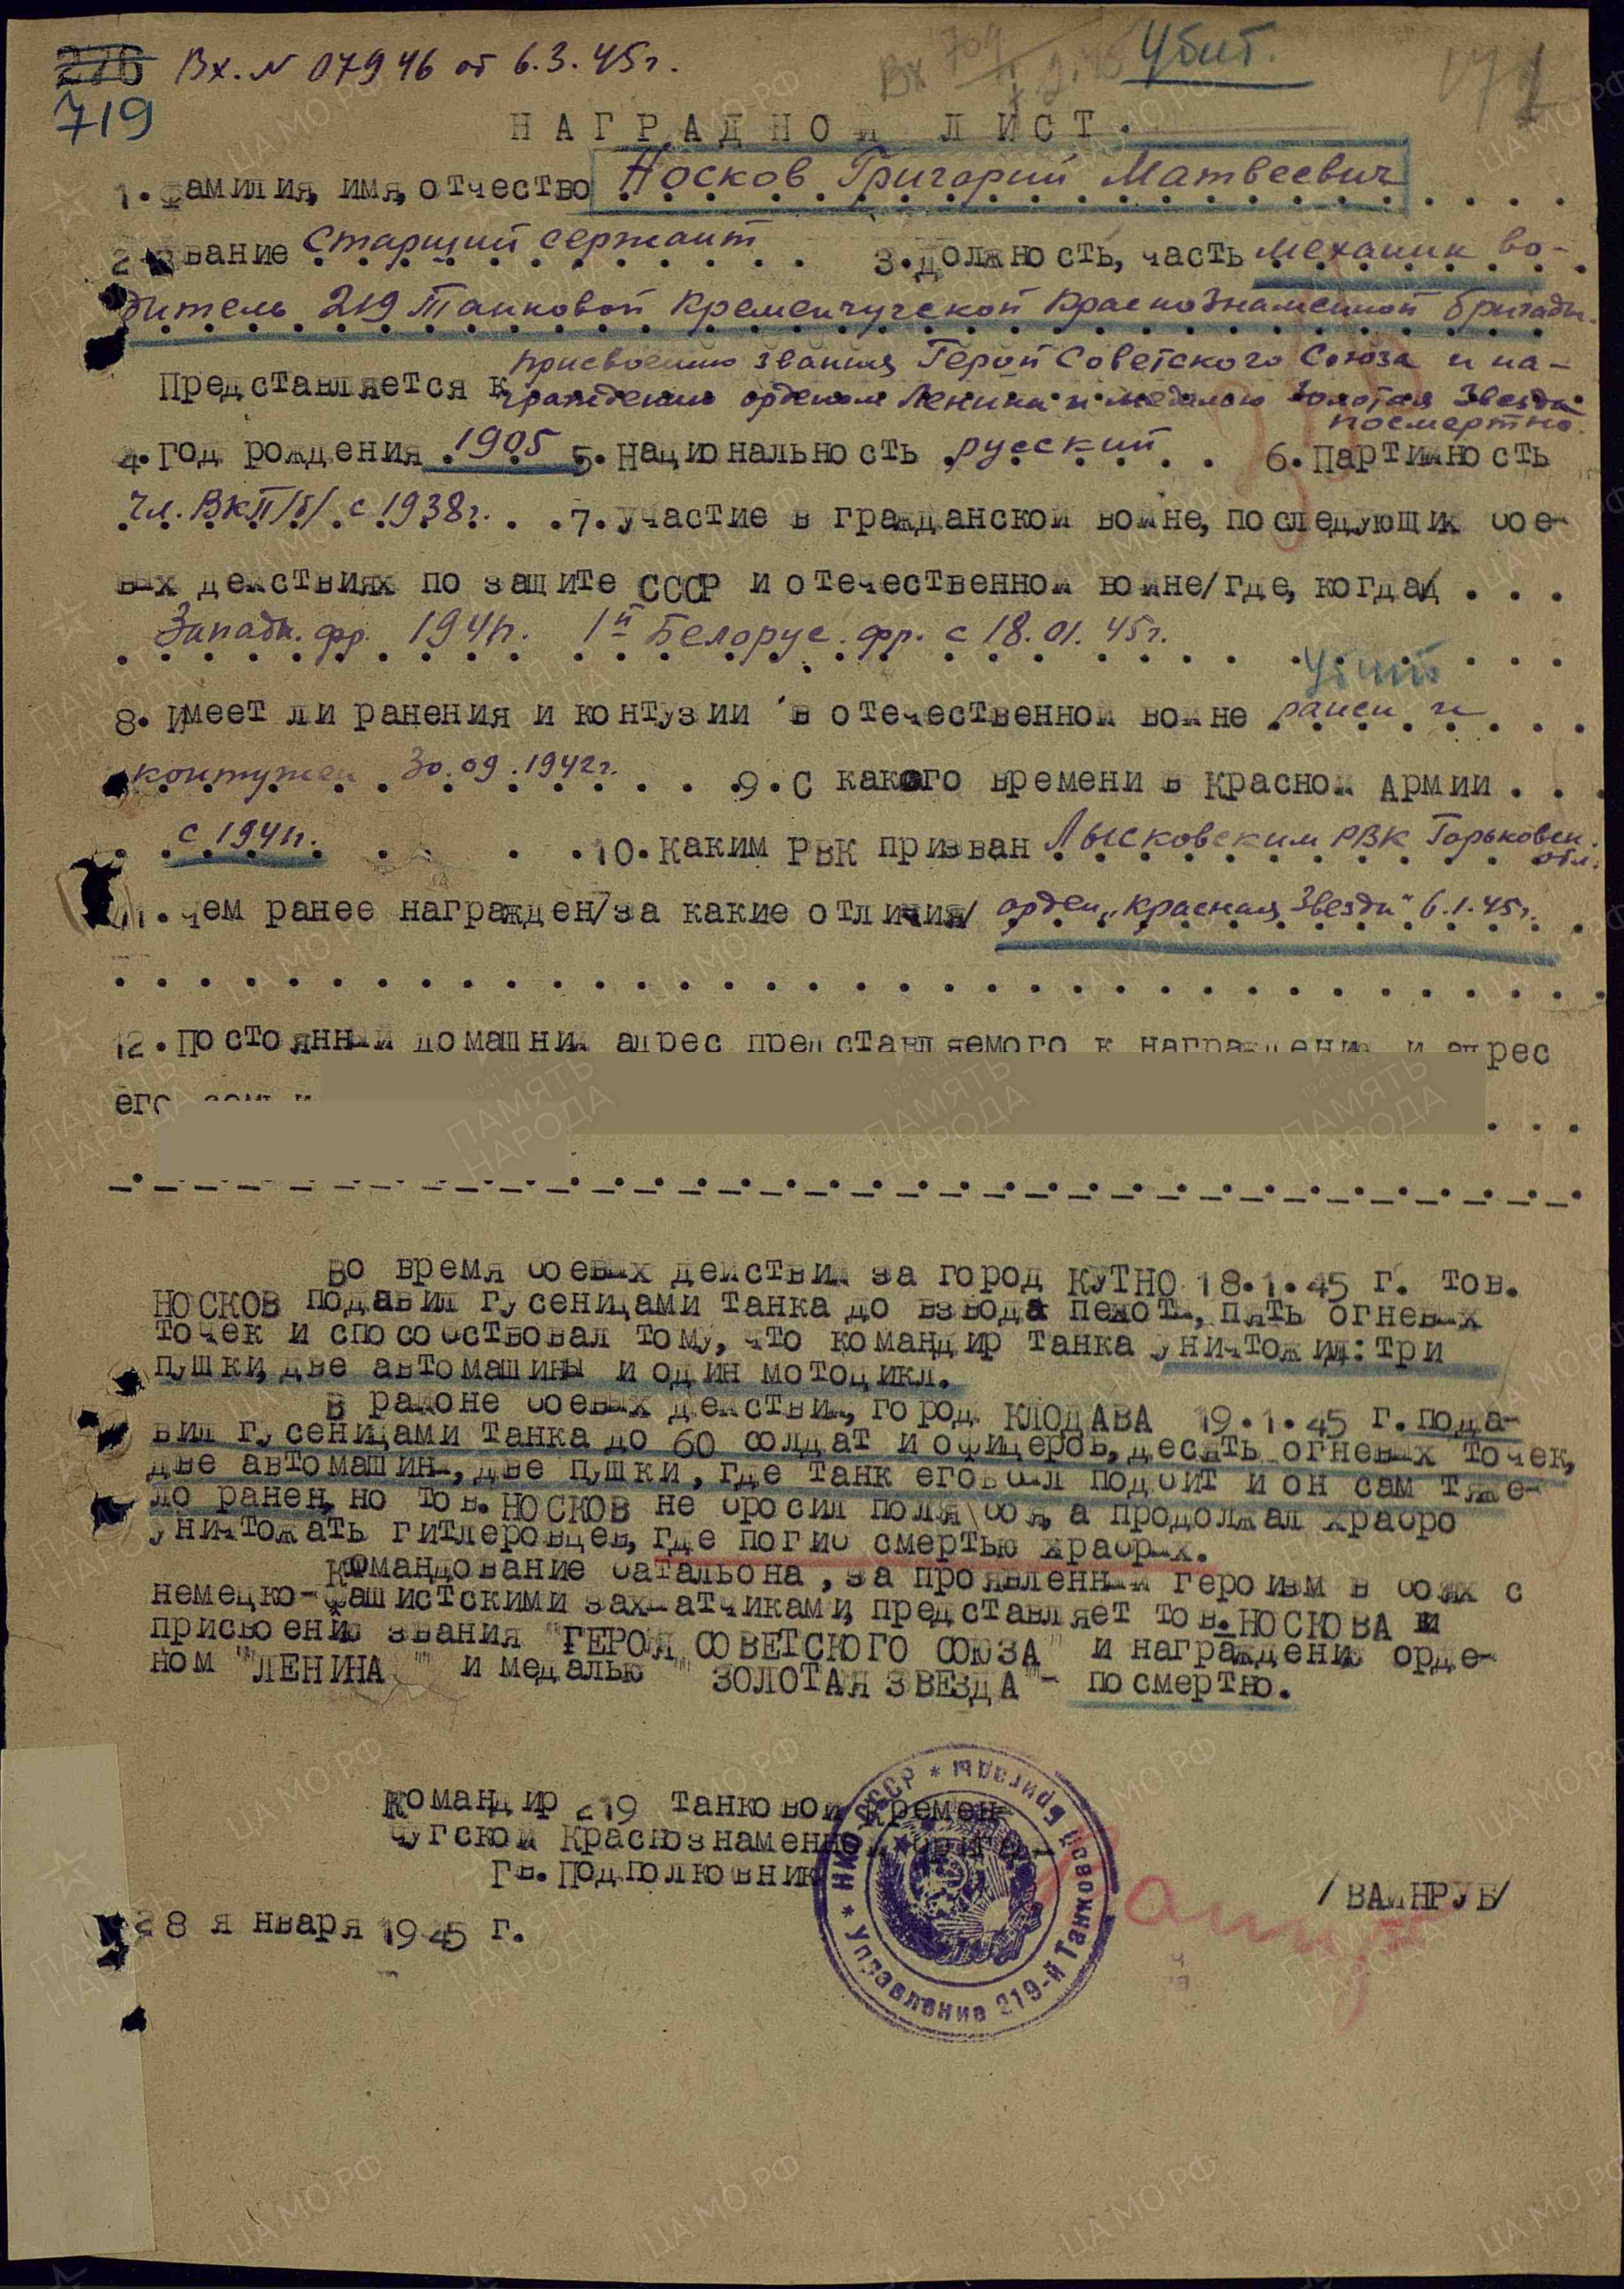 276 Вх. № 07946 от 6.3.45г. Убит.
719
НАГРАДНОЙ ЛИСТ.
1. Фамилия, имя, отчество Носков Григорий Матвеевич
2. Звание Старший сержант 3. Должность, часть механик во-
дитель 219 Танковой Кременчугской Краснознаменной бригады.
Представляется к присвоению звания Герой Советского Союза и на-
граждению орденом Ленина и медалью Золотая Звезда
посмертно.
4. Год рождения 1905 5. Национальность русский 6. Партийность
Чл. ВКП/б/ с 1938г. 7. Участие в гражданской войне, последующих бое-
вых действиях по защите СССР и отечественной войне/где, когда/
Западн. фр. 1941г. 1й Белорус. фр. с 18.01.45г.
Убит
8. Имеет ли ранения и контузии в отечественной войне ранен и
контужен 30.09.1942г. 9. С какого времени в Красной Армии
с 1941г. 10. Каким РВК призван Лысковским РВК Горьковск.
обл.
11. Чем ранее награжден/за какие отличия/ орден „Красная Звезда" 6.1.45г.
12. Постоянный домашний адрес представляемого к награждению и адрес
его семьи
Во время боевых действий за город КУТНО 18.1.45 г. тов.
НОСКОВ подавил гусеницами танка до взвода пехоты, пять огневых
точек и способствовал тому, что командир танка уничтожил: три
пушки, две автомашины и один мотоцикл.
В районе боевых действий, город КЛОДАВА 19.1.45 г. пода-
вил гусеницами танка до 60 солдат и офицеров, десять огневых точек,
две автомашины, две пушки, где танк его был подбит и он сам тяже-
ло ранен, но тов. НОСКОВ не бросил поля боя, а продолжал храбро
уничтожать гитлеровцев, где погиб смертью храбрых.
Командование батальона, за проявленный героизм в боях с
немецко-фашистскими захватчиками, представляет тов. НОСКОВА к
присвоению звания "ГЕРОЯ СОВЕТСКОГО СОЮЗА" и награждению орде-
ном "ЛЕНИНА" и медалью "ЗОЛОТАЯ ЗВЕЗДА" - посмертно.
Командир 219 танковой Кремен-
чугской Краснознаменной бригады
Гв. Подполковник /ВАЙНРУБ/
28 января 1945 г.
НКО СССР * Управление 219-й Танковой бригады *
ПАМЯТЬ НАРОДА
ЦА МО РФ